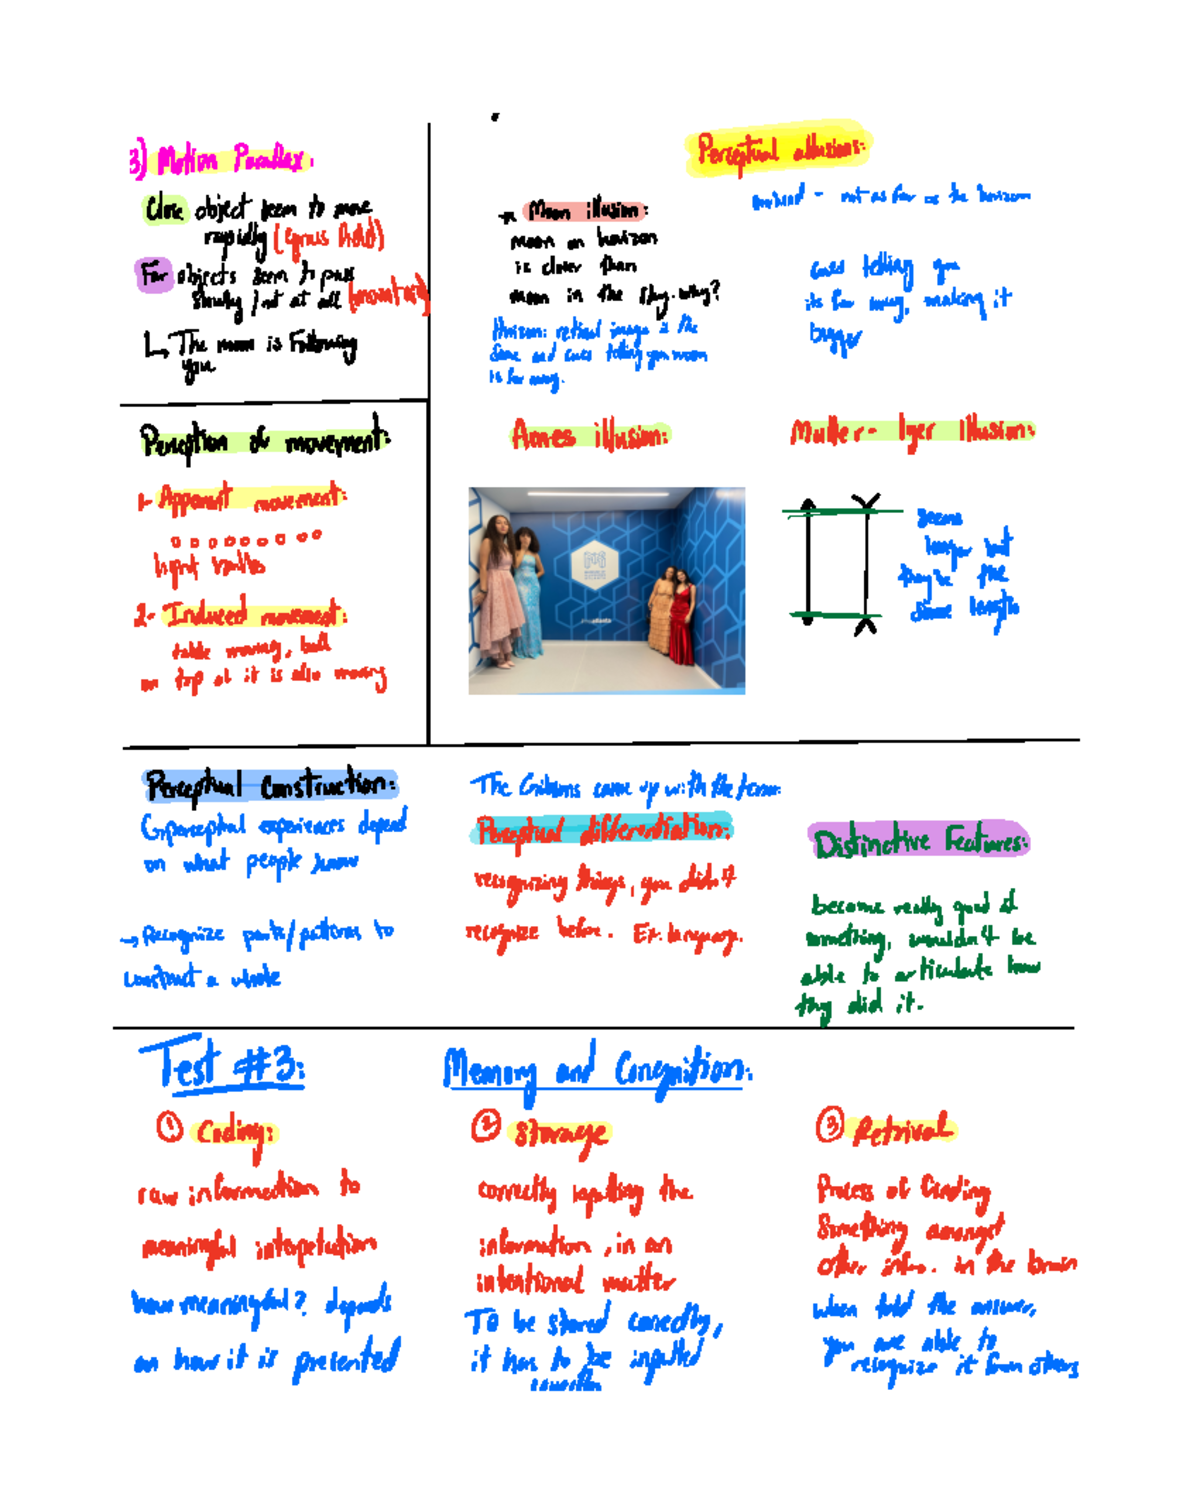 3) Motion Parallax:
Close object seem to move
rapidly
Far objects seem to pass
slowly / not at all
The moon is Following
you
Perceptual illusions:
Moon illusion:
moon on horizon
is closer than
moon in the sky. why?
Horizon: retinal image is the
same and cues telling you moon
is far away.
- not as far as the horizon
cues telling you
its far away, making it
bigger
Perception of movement:
1- Apparent movement:
light bulbs
2- Induced movement:
table moving, ball
on top of it is also moving
Ames illusion:
Muller- lyer Illusion:
seems
longer but
they're the
same length
Perceptual Construction:
perceptual experiences depend
on what people know
→ Recognize parts/patterns to
construct a whole
The Gibsons came up with the terms:
Perceptual differentiation:
recognizing things, you didn't
recognize before. Ex. language.
Distinctive Features:
become really good at
something, wouldn't be
able to articulate how
they did it.
Test #3:
Memory and Congnition:
① Coding:
raw information to
meaningful interpetation
how meaningful? depends
on how it is presented
② Storage
correctly inputting the
information, in an
intentional matter
To be stored correctly,
it has to be inputted
③ Retrival
Process of finding
Something amongst
other info. in the brain
when told the answer,
you are able to
recognize it from others